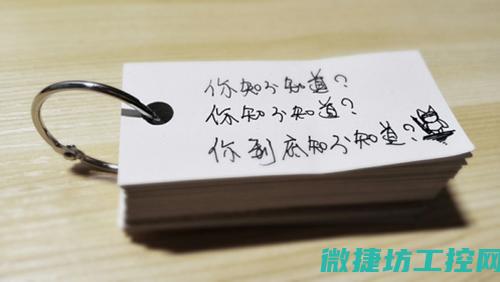 你知不知道？
你知不知道？
你到底知不知道？
微捷坊工控网